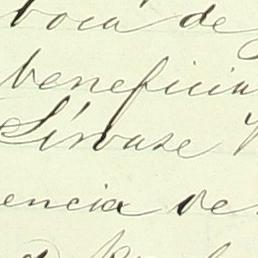 boca de
beneficia
Sírvase V
encia de